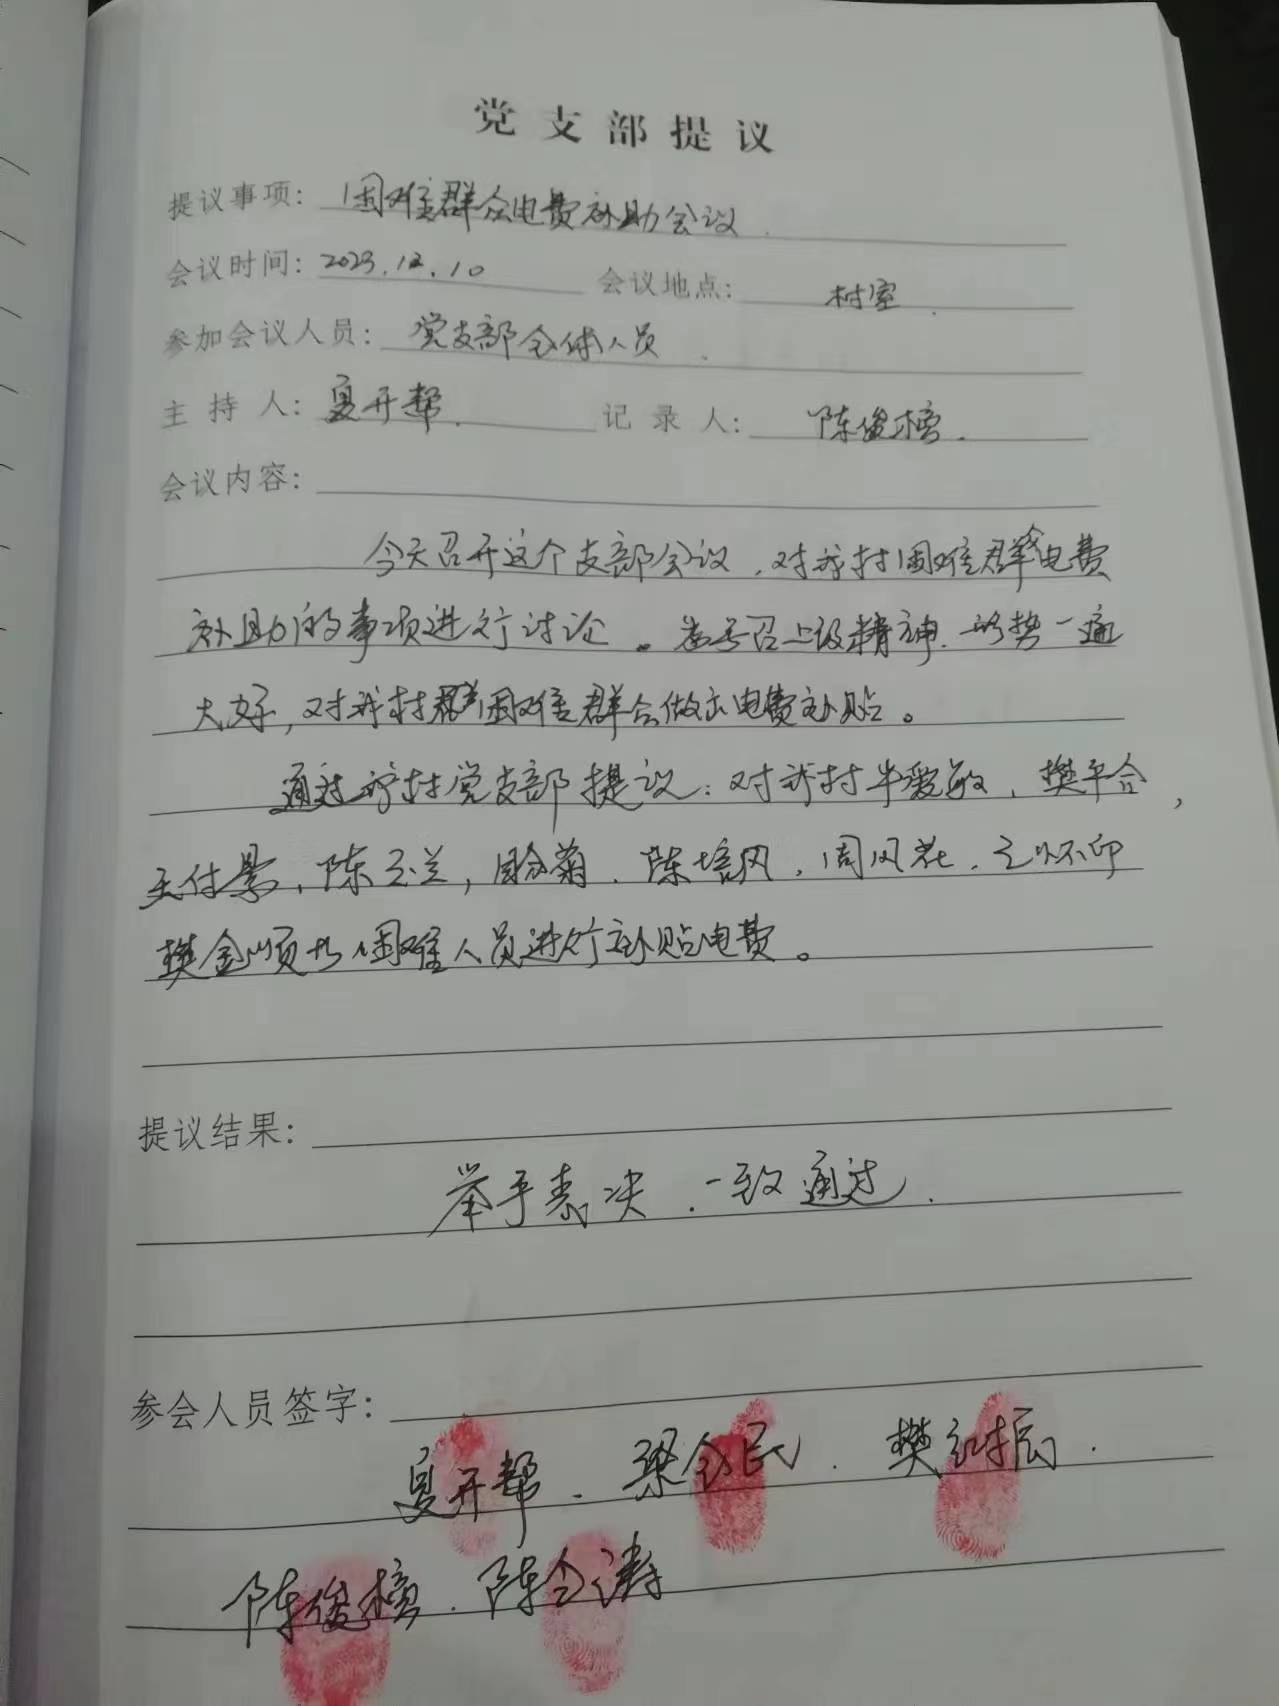 党支部提议
提议事项：困难群众电费补助会议.
会议时间：2023.12.10 会议地点： 村室.
参加会议人员： 党支部全体人员.
主 持 人：夏开帮. 记 录 人： 陈俊榜.
会议内容：
今天召开这个支部会议，对我村困难群众电费
补助的事项进行讨论。 号召上级精神. 形势一遍
大好，对我村困难群众做出电费补贴。
通过我村党支部提议：对我村 爱敏，樊平合，
陈玉兰， 菊. 陈培 ，周风花.
樊金顺 困难人员进行补贴电费。
提议结果：
举手表决.一致通过.
参会人员签字：
夏开帮. 梁 民. 樊 振.
陈俊榜. 陈全涛